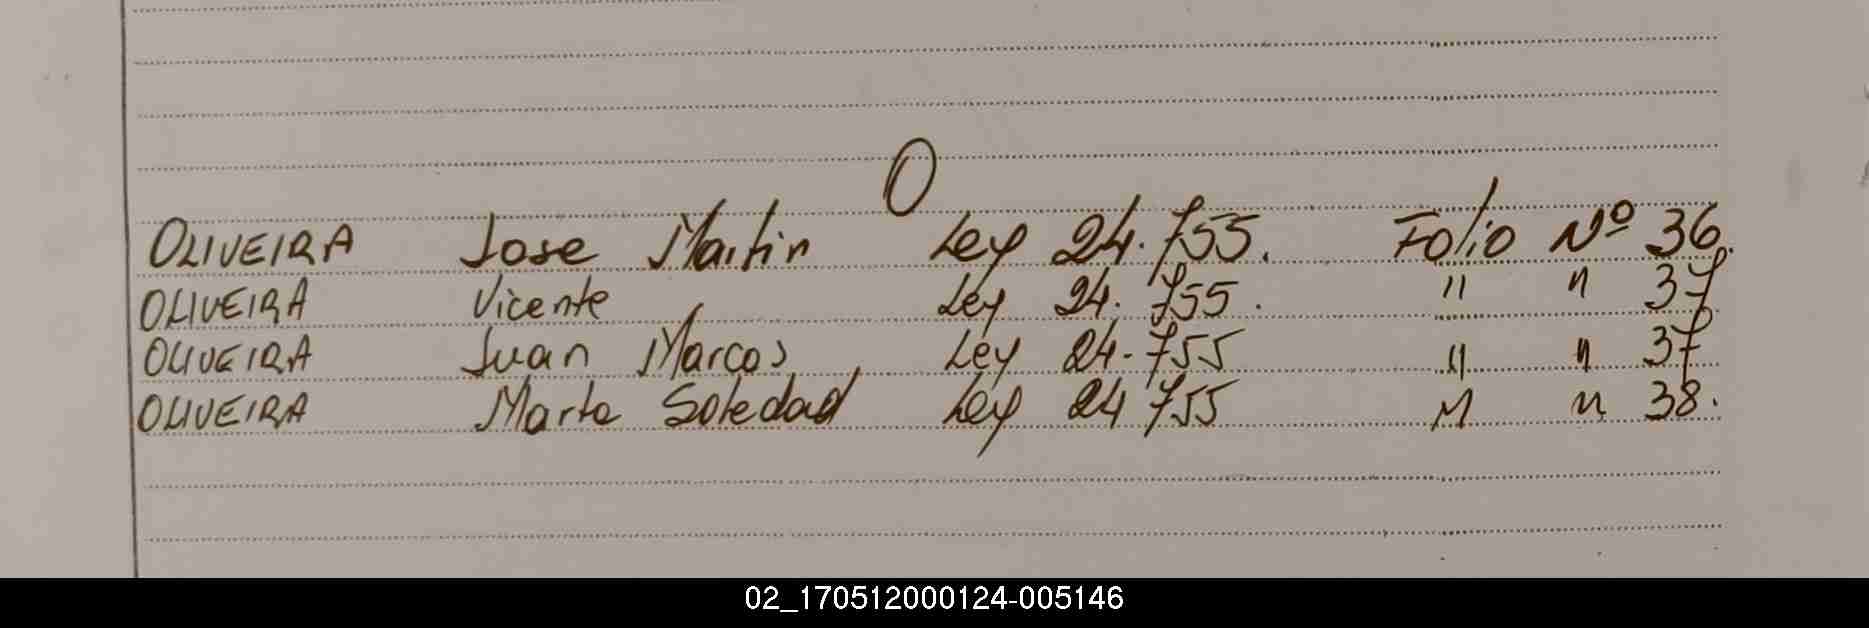 O
OLIVEIRA Jose Martin Ley 24.755. Folio Nº 36.
OLIVEIRA Vicente Ley 24.755. " " 37
OLIVEIRA Juan Marcos Ley 24.755 " " 37
OLIVEIRA Marta Soledad Ley 24 755 " " 38.
02_170512000124-005146